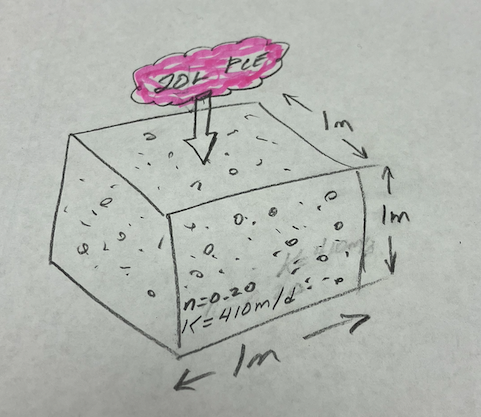 20L PCE
1m
1m
n=0.20
K=410m/d
1m